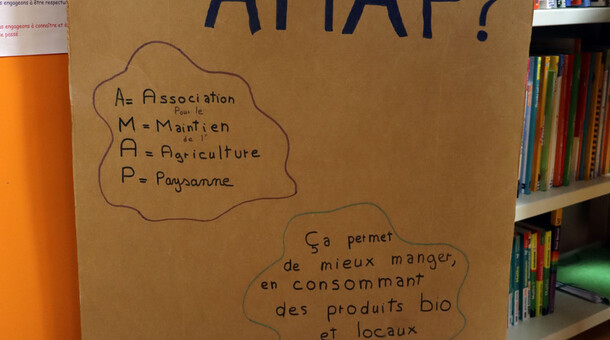 engageons à être respectu
engageons à connaître et à
posé
AMAP?
A = Association
Pour le
M = Maintien
de l'
A = Agriculture
P = Paysanne
Ça permet
de mieux manger,
en consommant
des produits bio
et locaux